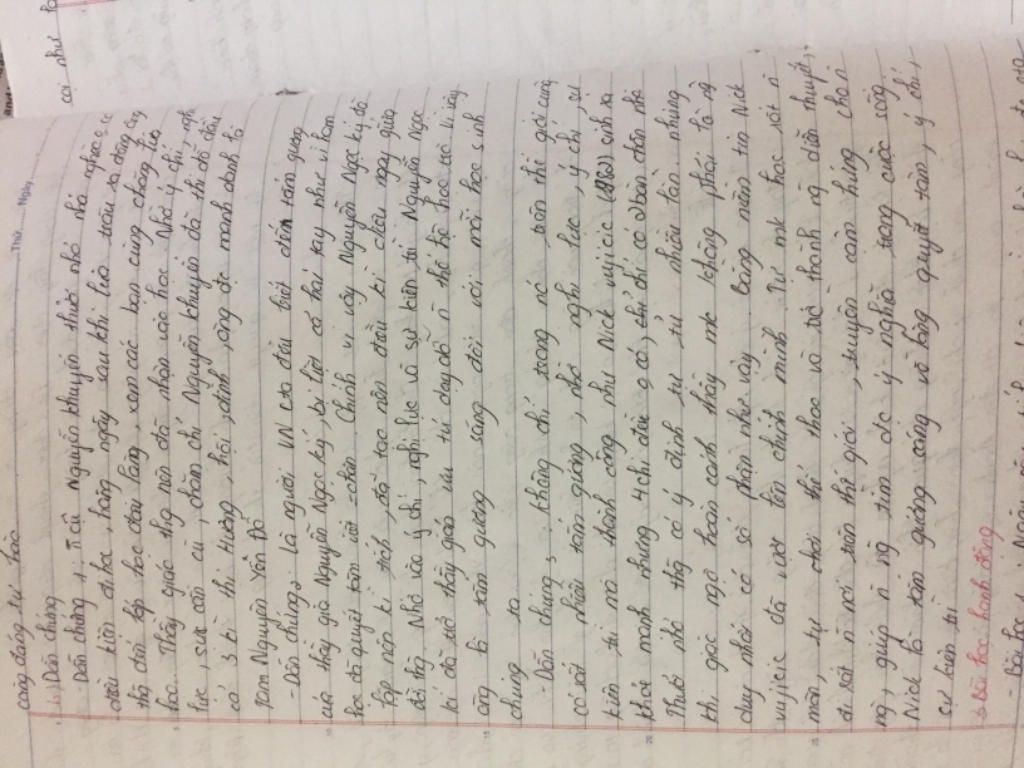 coi như
Thứ...... Ngày......
càng đáng tự hào
b.) Dẫn chứng
- Dẫn chứng 1: Nguyễn khuyến thuở nhỏ nhà nghèo k có
điều kiện đi học, hàng ngày sau khi lùa trâu ra đồng, ông
đến lớp học đầu làng, xem các bạn cùng trang lứa
học. Thầy giáo thấy nên đã nhận vào học. Nhờ ý chí, nghị
lực, sự cần cù, chăm chỉ Nguyễn khuyến đã thi đỗ đầu
cả 3 kì thi Hương, hội, đình, ông đc mệnh danh là
Tam Nguyên Yên Đổ
- Dẫn chứng 2: Là người VN đều biết đến tấm gương
của thầy giáo Nguyễn Ngọc ký, bị liệt cả hai tay nhưng vì ham
học đã quyết tâm viết = chân. Chính vì vậy Nguyễn Ngọc ký đã
lập nên kì tích, đã tạo nên điều kì diệu ngay giữa
đời. Nhờ vào ý chí, nghị lực và sự kiên trì Nguyễn Ngọc
kí đã trở thầy giáo ưu tú dạy dỗ n thế hệ học trò. Vì vậy,
ông là tấm gương sáng đối với mỗi học sinh
chúng ta
- Dẫn chứng 3: không chỉ trong nc, trên thế giới cũng
có rất nhiều tấm gương, nhờ nghị lực, ý chí, sự
kiên trì mà thành công như Nick vujicic (1982) sinh ra
khỏe mạnh nhưng 4 chi đều k có, chỉ có 2 bàn chân nhỏ
Thuở nhỏ có ý định tự tử nhiều lần. nhưng
khi góc ngộ hoàn cảnh thấy mk không phải là ng
duy nhất có số phận như vậy. Bằng niềm tin Nick
vujicic đã vượt lên chính mình. Tự mk học rất n
môn, tự chơi thể thao và trở thành ng diễn thuyết,
đi rất n nơi trên thế giới, truyền cảm hứng cho n
ng, giúp n ng tìm đc ý nghĩa trong cuộc sống.
Nick là tấm gương sáng về lòng quyết tâm, ý chí,
sự kiên trì
3 Bài học hành động
- Bài học: